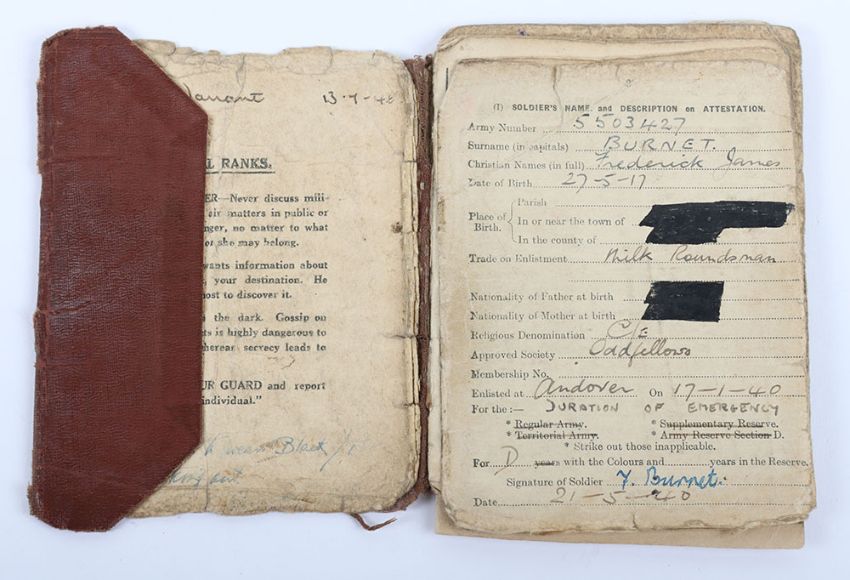 Warrant 13·7·48
L RANKS.
ER—Never discuss mili-
eir matters in public or
nger, no matter to what
or she may belong.
wants information about
, your destination. He
most to discover it.
the dark. Gossip on
ts is highly dangerous to
whereas secrecy leads to
UR GUARD and report
individual."
wear Black
out
(I) SOLDIER'S NAME and DESCRIPTION on ATTESTATION.
Army Number 5503427
Surname (in capitals) BURNET.
Christian Names (in full) Frederick James
Date of Birth 27-5-17
Place of Birth.
Parish
In or near the town of
In the county of
Trade on Enlistment Milk Roundsman
Nationality of Father at birth
Nationality of Mother at birth
Religious Denomination C/E
Approved Society Oddfellows
Membership No.
Enlisted at Andover On 17-1-40
For the :— DURATION OF EMERGENCY
* Regular Army. * Supplementary Reserve.
* Territorial Army. * Army Reserve Section D.
* Strike out those inapplicable.
For D years with the Colours and years in the Reserve.
Signature of Soldier F. Burnet.
Date 21-5-40